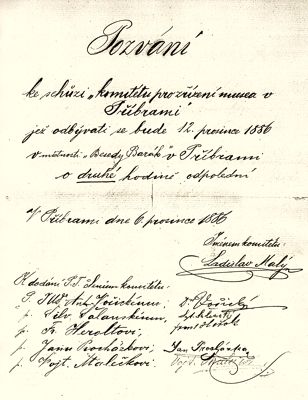 Pozvání
ke schůzi „komitétu pro zřízení musea v
Příbrami"
jež odbývati se bude 12. prosince 1886
v místnosti „Besedy Barák" v Příbrami
o druhé hodině odpolední
V Příbrami dne 6. prosince 1886
Jménem komitétu:
Ladislav Malý
K dodání P.T. členům komitétu:
p. Fr. Heroltovi
p. Janu Procházkovi, Jan Procházka
p. Vojt. Malečkovi.